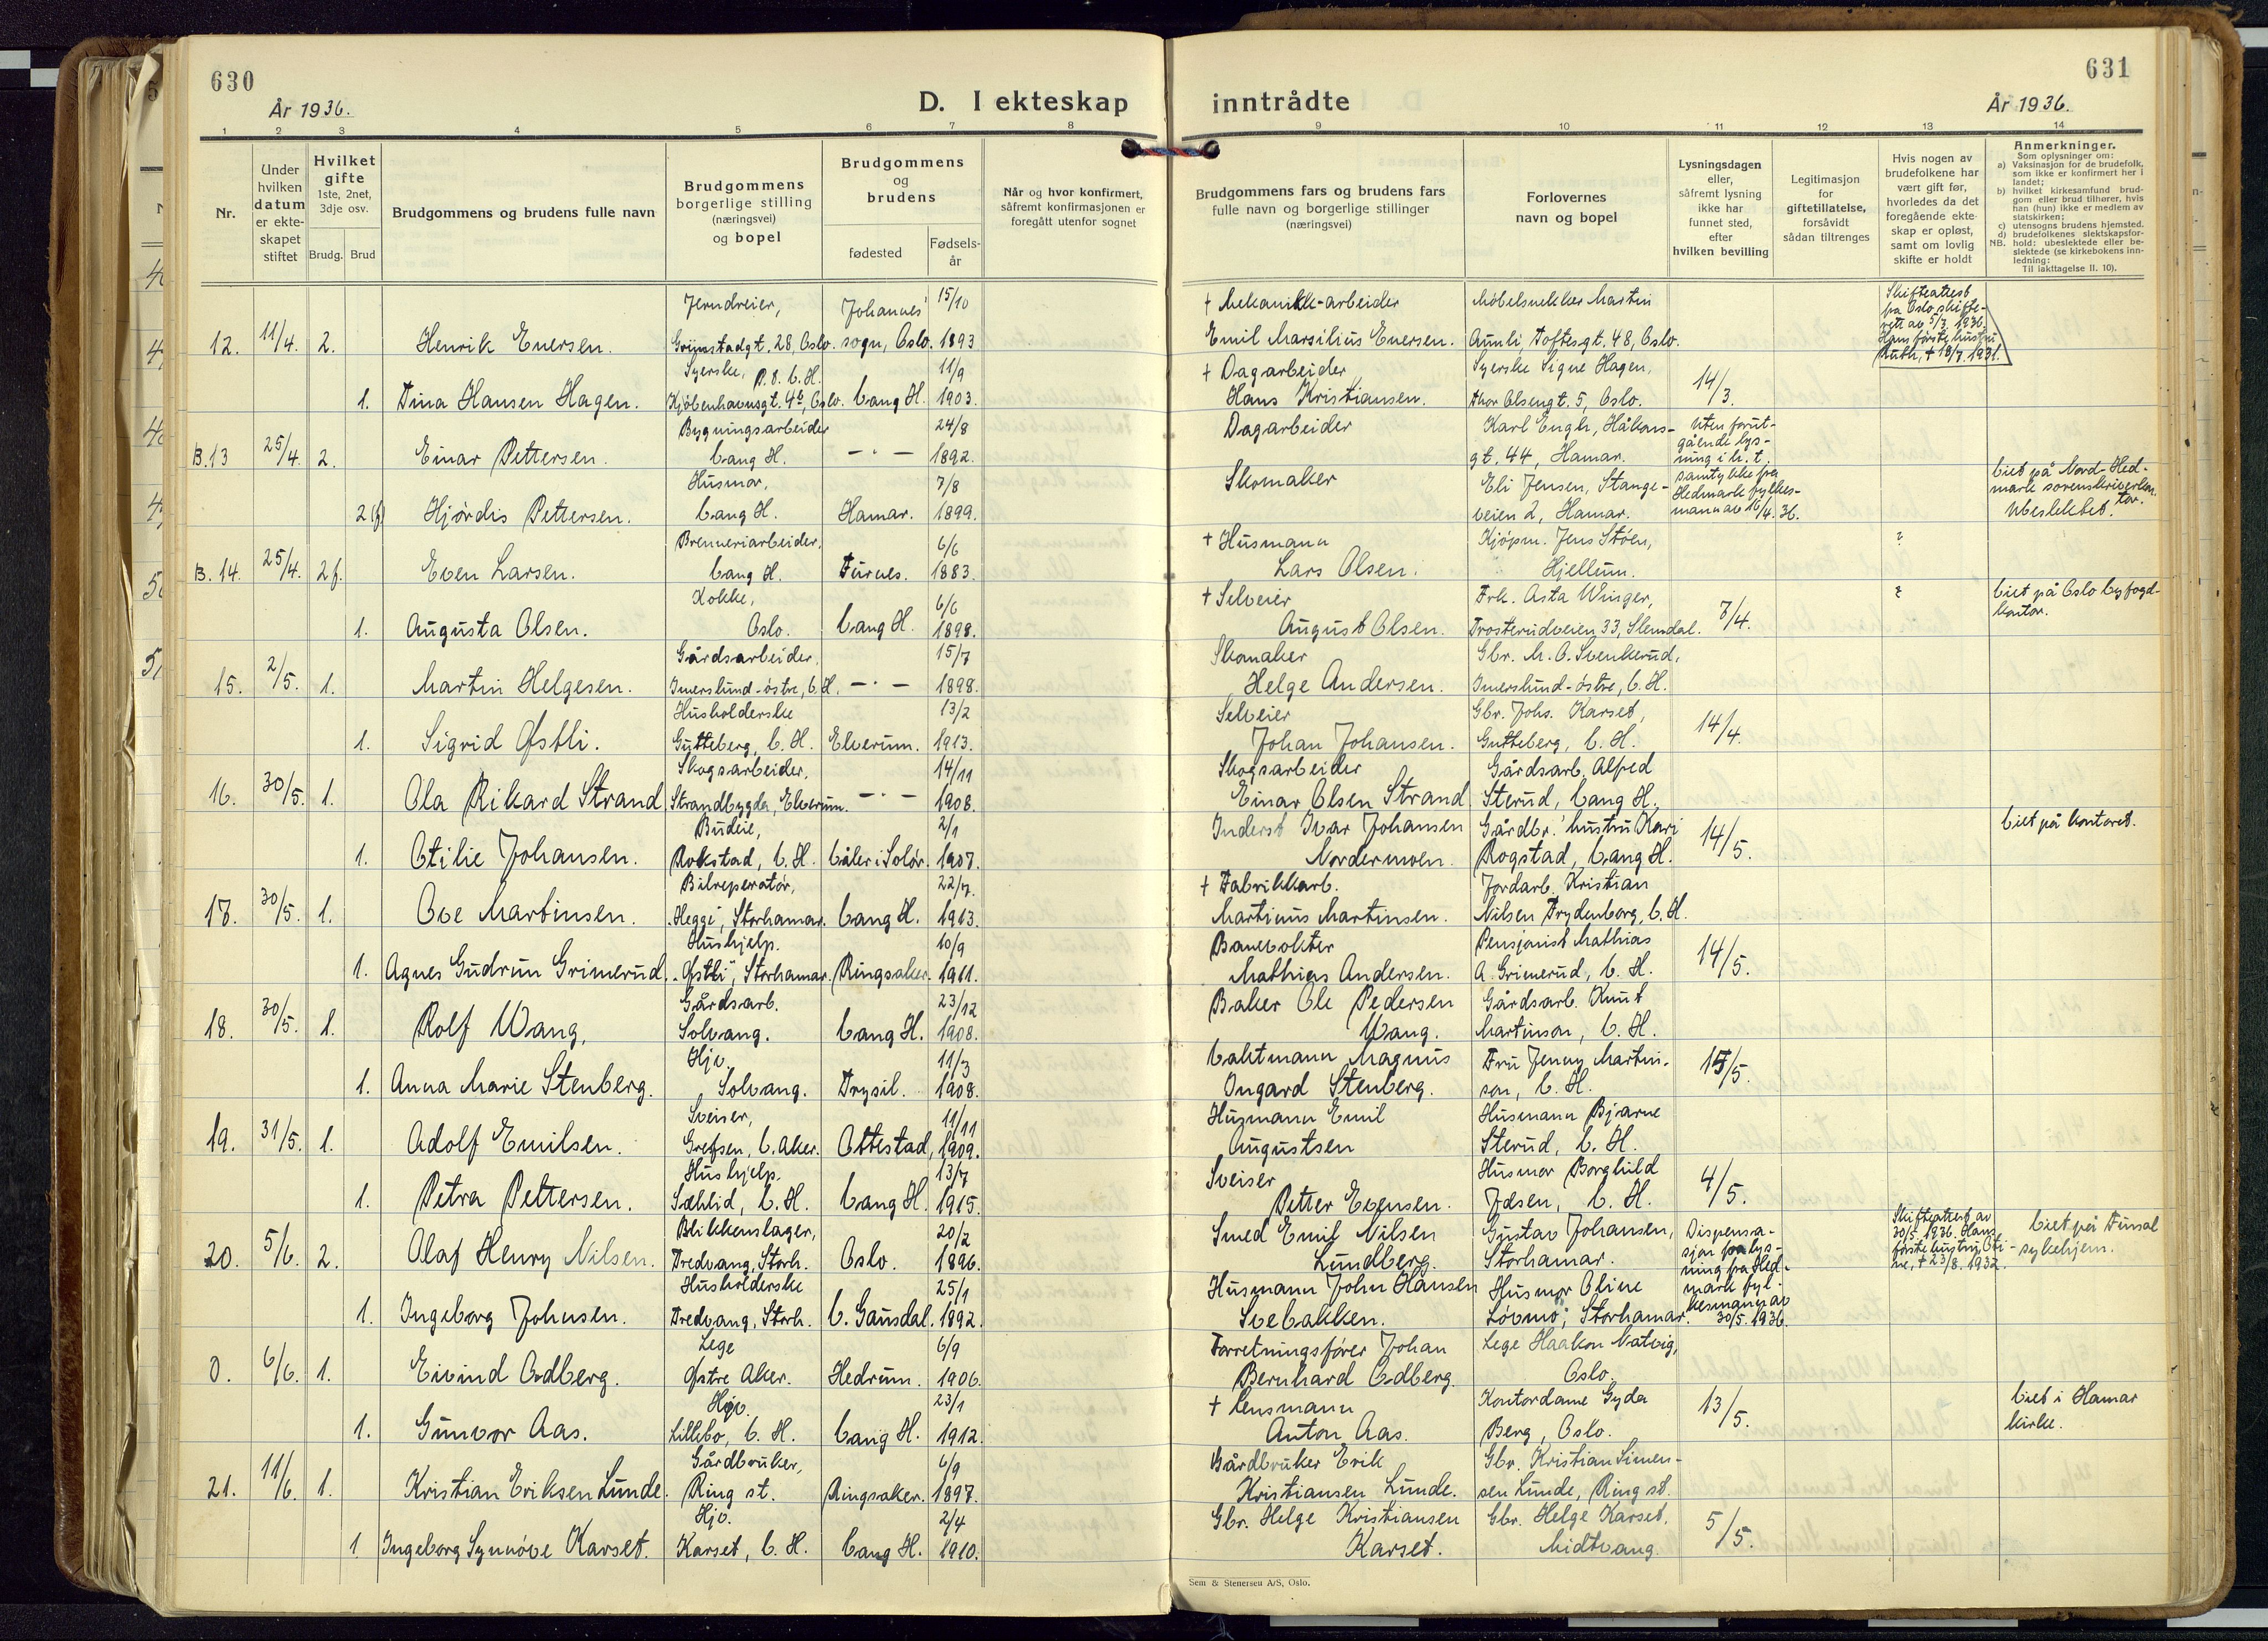 630
År 1936.
D. I ekteskap
1 2 3 4 5 6 7 8
Nr.
Under hvilken datum er ekteskapet stiftet
Hvilket gifte
1ste, 2net, 3dje osv.
Brudg. Brud
Brudgommens og brudens fulle navn
Brudgommens borgerlige stilling (næringsvei) og bopel
Brudgommens og brudens
fødested
Fødselsår
Når og hvor konfirmert, såfremt konfirmasjonen er foregått utenfor sognet
Jerndreier, Johannes' 15/10
12. 11/4. 2. Henrik Eversen. Grimstadgt. 28, Oslo. sogn, Oslo. 1893
Syerske, 11/9
1. Tina Hansen Hagen. Kjöbenhavnsgt. 4b, Oslo. Vang H. 1903.
Bygningsarbeider 24/8
B.13 25/4. 2. Einar Pettersen. Vang H. —"— 1892.
Husmor, 7/8
2(f) Hjördis Pettersen. Vang H. Hamar. 1899.
Brenneriarbeider, 6/6
B. 14. 25/4. 2f. Even Larsen. Vang H. Furnes. 1883.
Kokke, 6/6
1. Augusta Olsen. Oslo. Vang H. 1898.
Gårdsarbeider, 15/7
15. 2/5. 1. Martin Helgesen. Imerslund-östre, V. H. —"— 1898.
Husholderske 13/2
1. Sigrid Østli. Gutteberg, V. H. Elverum. 1913.
Skogsarbeider, 14/11
16. 30/5. 1. Ola Rikard Strand Strandbygda, Elverum. —"— 1908.
Budeie, 2/1
1. Otilie Johansen. Rokstad, V. H. Våler i Solør. 1907.
Bilreperatör, 22/7.
17. 30/5. 1. Ove Martinsen. "Heggi", Storhamar. Vang H. 1913.
Hushjelp. 10/9
1. Agnes Gudrun Grimerud. "Østli", Storhamar. Ringsaker. 1911.
Gårdsarb. 23/12
18. 30/5. 1. Rolf Wang, Solvang. Vang H. 1908.
Hjv. 11/3
1. Anna Marie Stenberg. Solvang. Trysil. 1908.
Sveiser, 11/11
19. 31/5. 1. Adolf Emilsen. Grefsen, V. Aker. Ottestad, 1909.
Hushjelp. 13/7
1. Petra Pettersen. Sælid, V. H. Vang H. 1915.
Blikkenslager, 20/2
20. 5/6. 2. Olaf Henry Nilsen. Tredvang, Storh. Oslo. 1896.
Husholderske 25/1
1. Ingeborg Johnsen. Tredvang, Storh. V. Gausdal. 1892.
Lege 6/9
0. 6/6. 1. Eivind Odberg. Østre Aker. Hedrum. 1906.
Hjv. 23/1
1. Gunvor Aas. Lillebo, V. H. Vang H. 1912.
Gårdbruker, 6/9
21. 11/6. 1. Kristian Eriksen Lunde. Ring st. Ringsaker. 1897.
Hjv. 2/4
1 Ingeborg Synnöve Karset. Karset, V. H. Vang H. 1910.
631
inntrådte
År 1936.
9 10 11 12 13 14
Brudgommens fars og brudens fars fulle navn og borgerlige stillinger (næringsvei)
Forlovernes navn og bopel
Lysningsdagen eller, såfremt lysning ikke har funnet sted, efter hvilken bevilling
Legitimasjon for giftetillatelse, forsåvidt sådan tiltrenges
Hvis nogen av brudefolkene har vært gift før, hvorledes da det foregående ekteskap er opløst, samt om lovlig skifte er holdt
Anmerkninger.
Som oplysninger om:
a) Vaksinasjon for de brudefolk, som ikke er konfirmert her i landet;
b) hvilket kirkesamfund brudgom eller brud tilhører, hvis han (hun) ikke er medlem av statskirken;
c) utensogns brudens hjemsted.
d) brudefolkenes slektskapsforhold: ubeslektede eller beslektede (se kirkebokens innledning:
NB. Til iakttagelse II. 10).
+ Mekanikk-arbeider Möbelsnekker Martin
Emil Marsilius Eversen. Aunli, Toftesgt. 48, Oslo.
Skifteattest fra Oslo skifterett av 5/3. 1936. Hans første hustru Ruth, + 18/7. 1931.
+ Dagarbeider Syerske Signe Hagen,
Hans Kristiansen. Thor Olsengt. 5, Oslo. 14/3.
Dagarbeider Karl Engh, Håkons-
gt. 44, Hamar.
Uten forutgående lysning i h. t. samtykke fra Hedmark fylkesmann av 16/4. 36.
Skomaker Eli Jensen, Stange-
veien 2, Hamar.
Viet på Nord-Hedmark sorenskriverkontor. Ubeslektet.
+ Husmann Kjöpm. Jens Stöen, ?
Lars Olsen. Hjellum.
+ Selveier Frk. Asta Winger, ? Viet på Oslo byfogd-
August Olsen. Trosterudveien 33, Slemdal. 7/4. kontor.
Skomaker Gbr. M. O. Svenkerud,
Helge Andersen. Imerslund-östre, V. H.
Selveier Gbr. Johs. Karset,
Johan Johansen. Gutteberg, V. H. 14/4.
Skogsarbeider Gårdsarb. Alfred
Einar Olsen Strand Sterud, Vang H.
Inderst Ivar Johansen Gårdbr.' hustru Kari Viet på kontoret.
Nordermoen. Rogstad, Vang H. 14/5.
+ Fabrikkarb. Jordarb. Kristian
Martinus Martinsen. Nilsen Frydenborg, V. H.
Banevokter Pensjonist Mathias
Mathias Andersen. A. Grimerud, V. H. 14/5.
Baker Ole Pedersen Gårdsarb. Knut
Wang. Martinson, V. H.
Vaktmann Magnus Fru Jenny Martin-
Ingard Stenberg. son, V. H. 15/5.
Husmann Emil Husmann Bjarne
Augustsen Sterud, V. H.
Sveiser Husmor Borghild
Petter Evensen. Jdsen, V. H. 4/5.
Smed Emil Nilsen Gustav Johansen,
Lundberg. Storhamar.
Dispensasjon fra lysning fra Hedmark fylkesmann av 30/5. 1936.
Skifteattest av 30/5. 1936. Hans første hustru, Oline, + 23/8. 1932.
Viet på Furusal sykehjem.
Husmann John Hansen Husmor Oline
Svebakken. Lövmo, Storhamar.
Forretningsfører Johan Lege Haakon Natvig,
Bernhard Odberg. Oslo.
+ Lensmann Kontordame Gyda Viet i Hamar
Anton Aas. Berg, Oslo. 13/5. kirke.
Gårdbruker Erik Gbr. Kristian Simen-
Kristiansen Lunde. sen Lunde, Ring st.
Gbr. Helge Kristiansen Gbr. Helge Karset,
Karset. Midtvang. 5/5.
Sem & Stenersen A/S, Oslo.